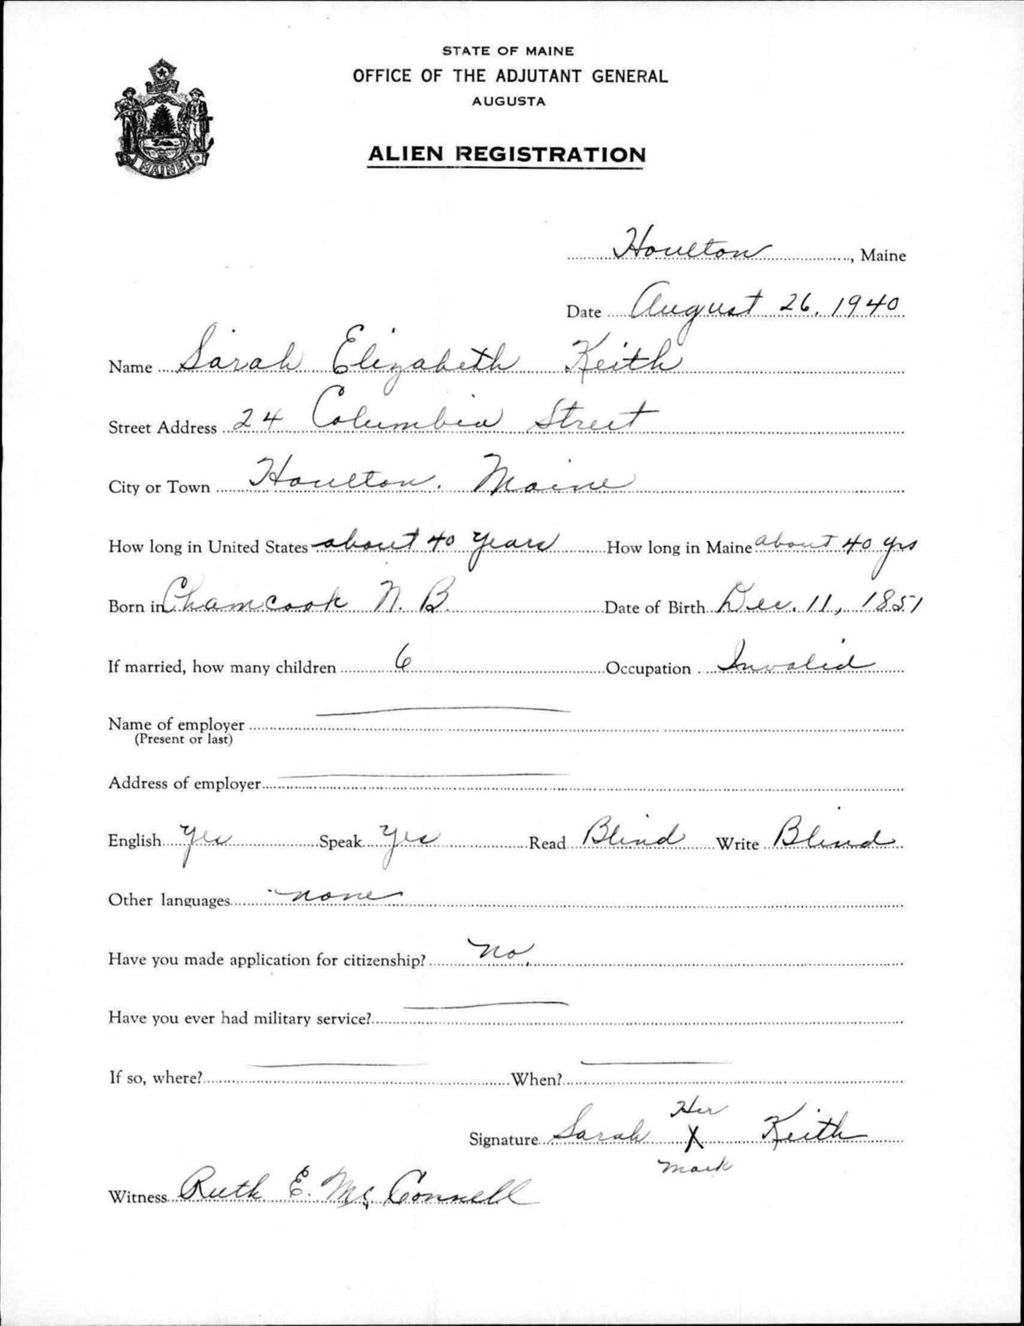 STATE OF MAINE
OFFICE OF THE ADJUTANT GENERAL
AUGUSTA
ALIEN REGISTRATION
MAINE
Houlton, Maine
Date August 26, 1940
Name Sarah Elizabeth Keith
Street Address 24 Columbia Street
City or Town Houlton, Maine
How long in United States about 40 years How long in Maine about 40 yrs
Born in Chamcook N. B. Date of Birth Dec. 11, 1851
If married, how many children 6 Occupation Invalid
Name of employer
(Present or last)
Address of employer
English Yes Speak Yes Read Blind Write Blind
Other languages none
Have you made application for citizenship? No.
Have you ever had military service?
If so, where? When?
Her
Signature Sarah X Keith
mark
Witness Ruth E. McConnell